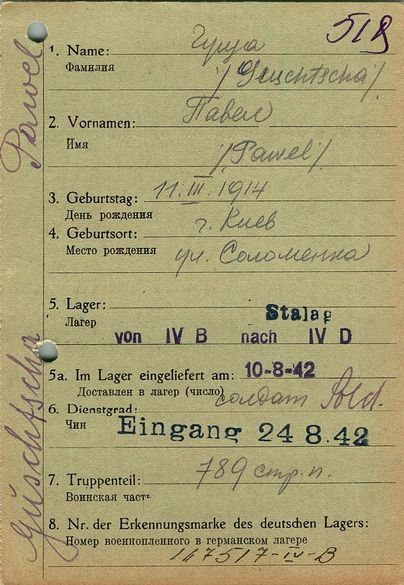 51B
1. Name: Гуща
Фамилия /Guschtscha/
2. Vornamen: Павел
Имя /Pawel/
3. Geburtstag: 11.III.1914
День рождения
4. Geburtsort: г. Киев
Место рождения ул. Соломенка
5. Lager: Stalag
Лагер
von IV B nach IV D
5a. Im Lager eingeliefert am: 10-8-42
Доставлен в лагер (число)
6. Dienstgrad: солдат Sold.
Чин
Eingang 24 8.42
7. Truppenteil: 789 стр.п.
Воинская часть
8. Nr. der Erkennungsmarke des deutschen Lagers:
Номер военнопленного в германском лагере
147517-IV-B
Guschtscha Pawel